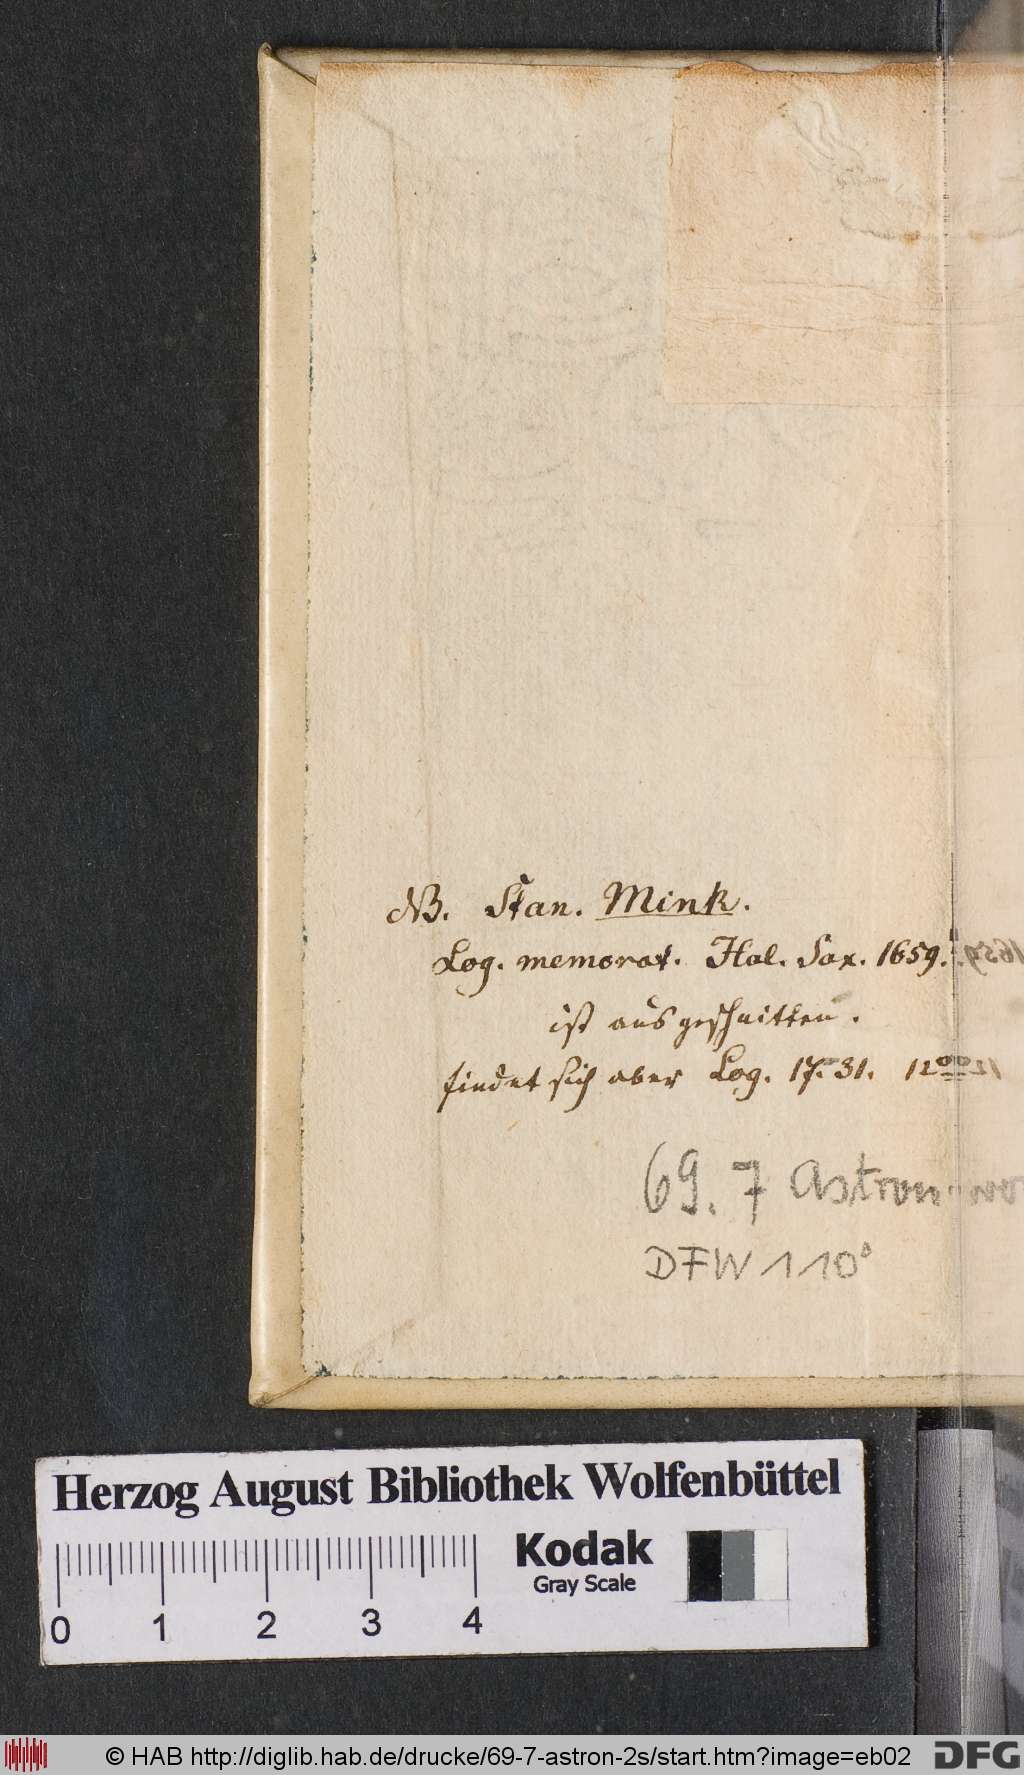 NB. Stan. Mink.
Log. memorat. Hal. Sax. 1659.
ist ausgeschnitten.
findet sich aber Log. 17. 31. 12⁰
69. 7 Astron.
DFW 110°
Herzog August Bibliothek Wolfenbüttel
Kodak
Gray Scale
0 1 2 3 4
© HAB http://diglib.hab.de/drucke/69-7-astron-2s/start.htm?image=eb02
DFG